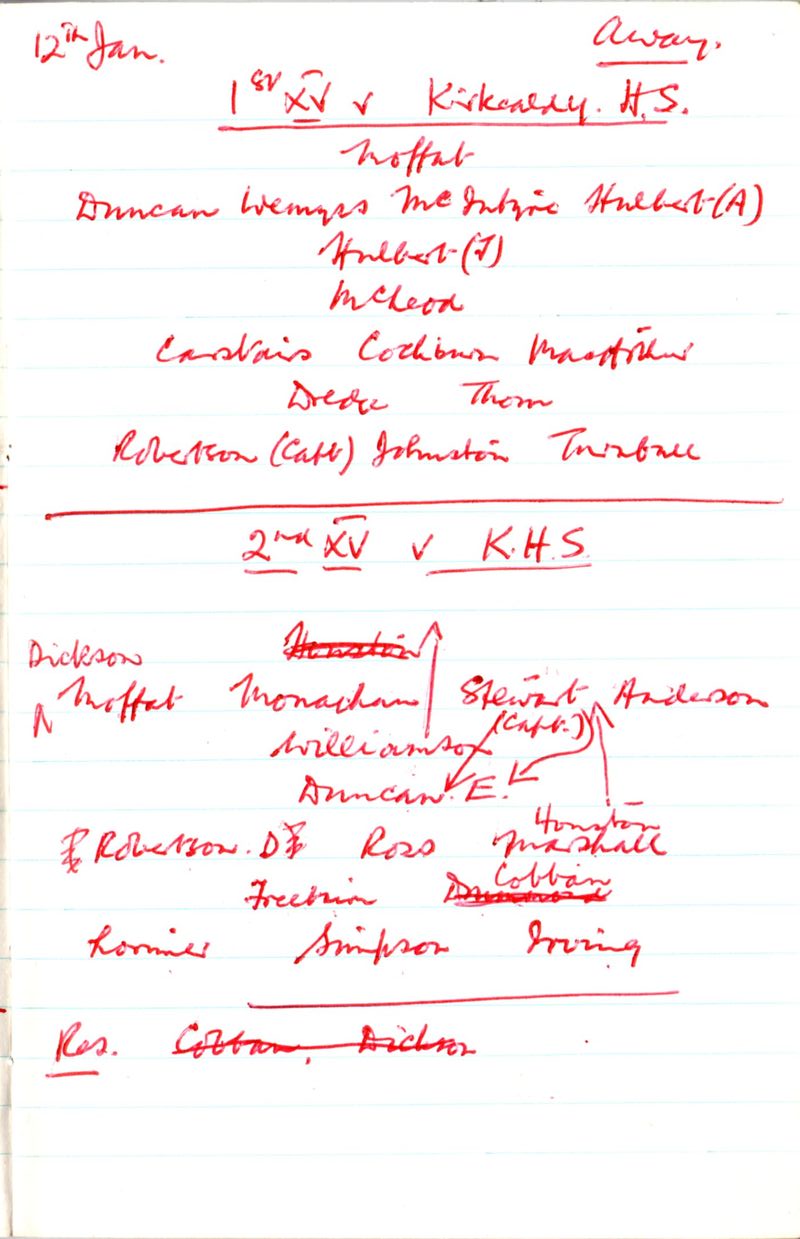 12th Jan.
Away.
1st XV v Kirkcaldy. H.S.
Moffat
Duncan Wemyss McIntyre Hulbert (A)
Hulbert (J)
McLeod
Carstairs Cockburn MacArthur
Dredge Thom
Robertson (Capt) Johnston Turnbull
2nd XV v K.H.S.
Houston
Dickson
Moffat Monaghan Stewart Anderson
(Capt.)
Williamson
Duncan. E.
Houston
Robertson. D Ross Marshall
Cobban
Freebairn
Lorimer Simpson Irving
Res. Cobban, Dickson